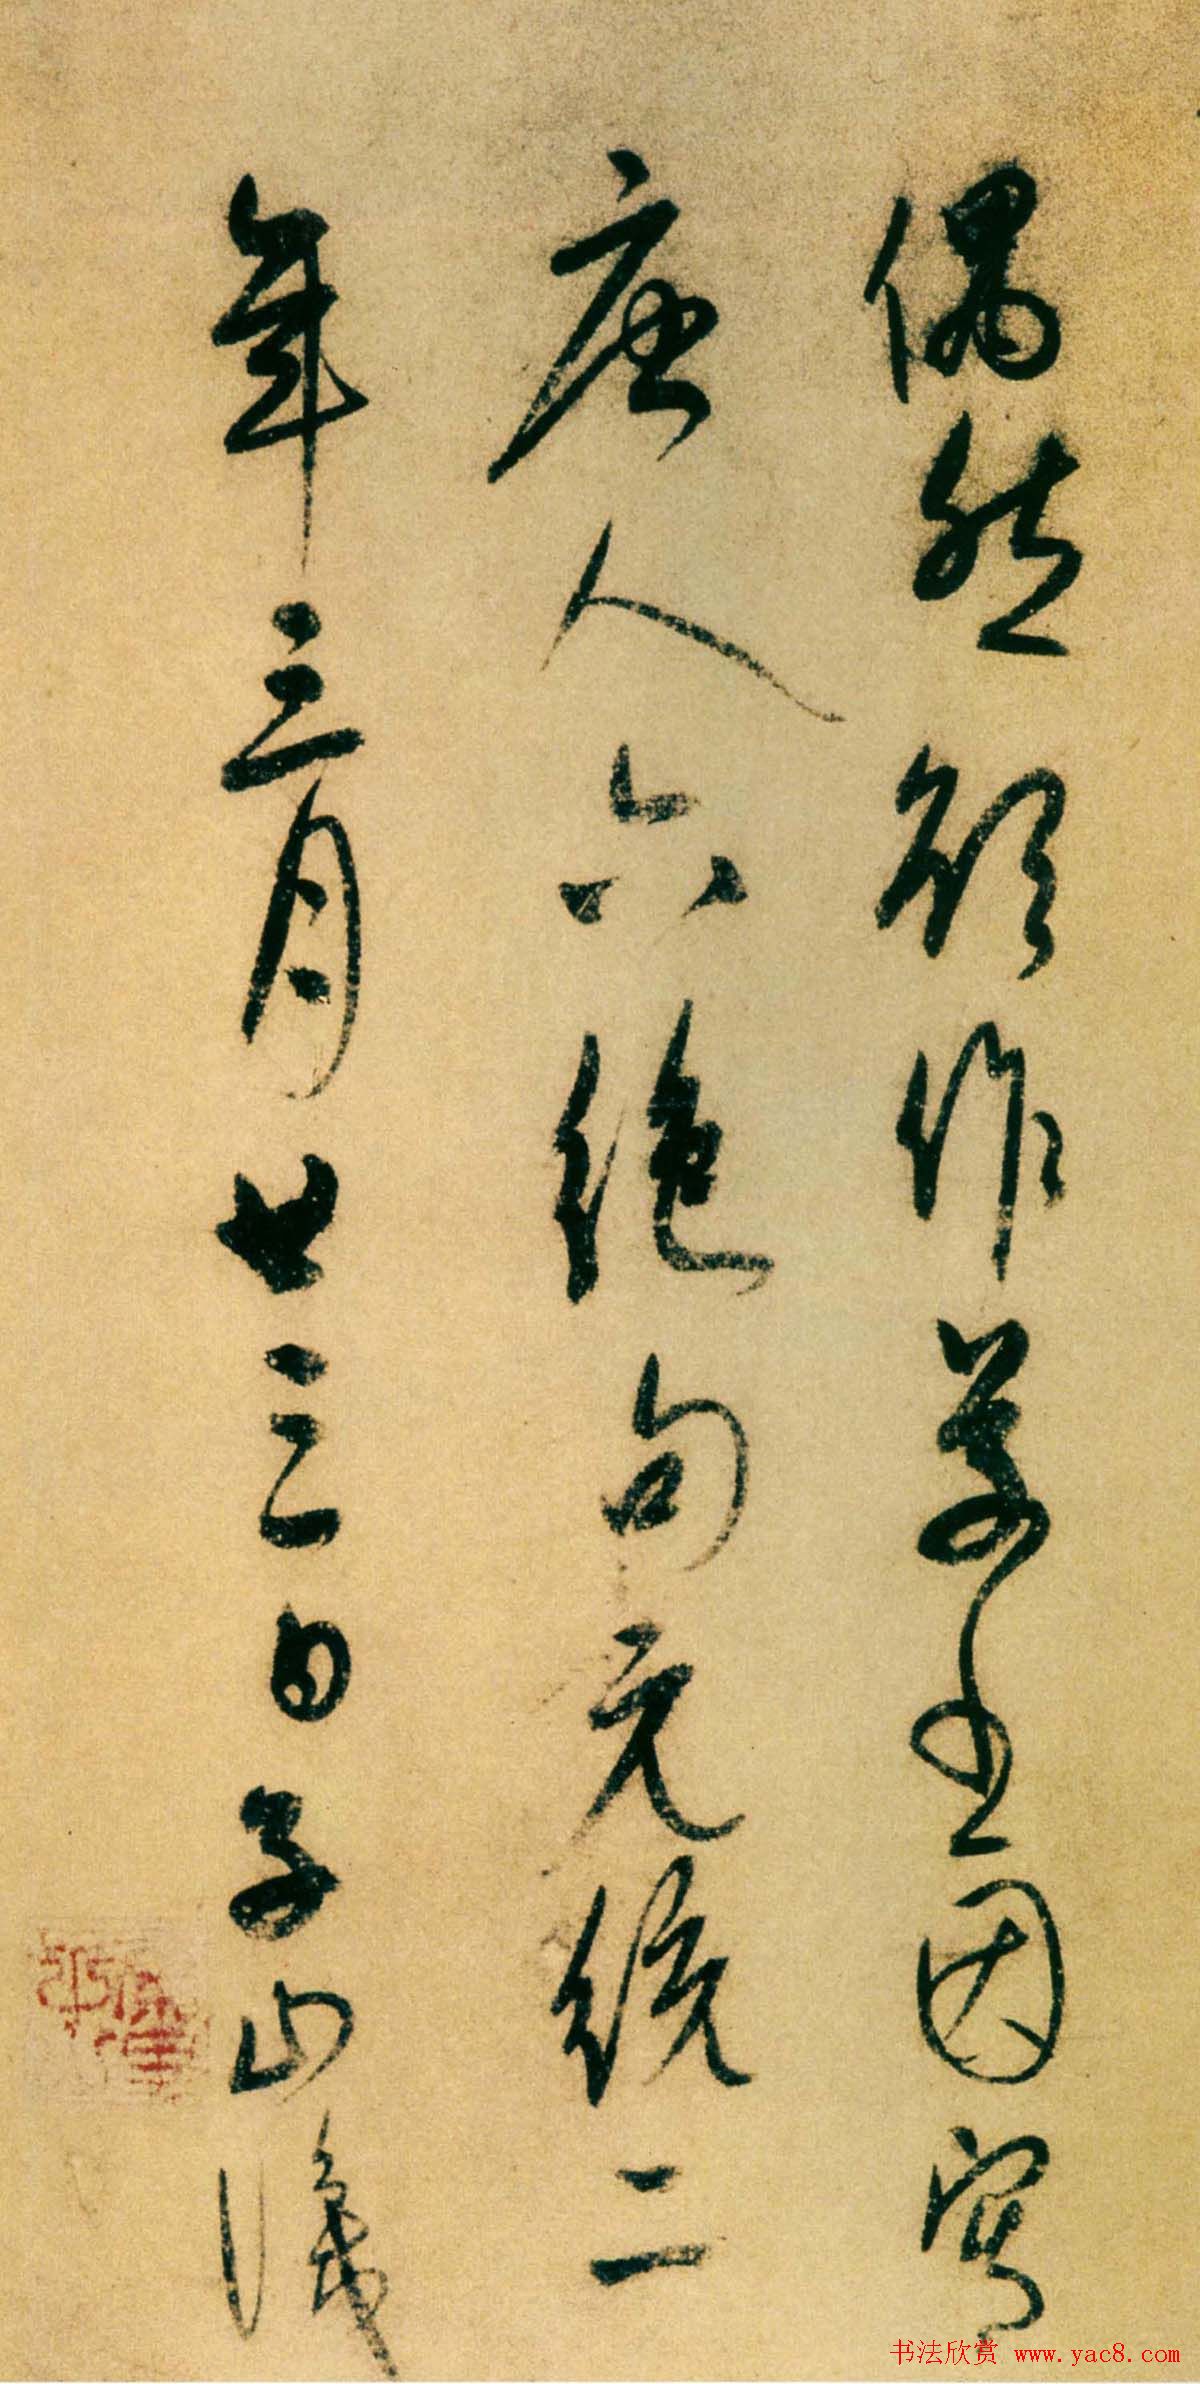 偶然欲作草書因寫
唐人六絕句元統二
年三月廿三日子山識
书法欣赏 www.yac8.com